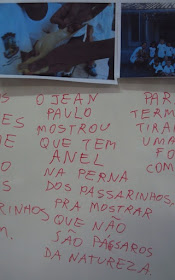 OS
ES
DE
O
S
RINHOS
M.
O JEAN
PAULO
MOSTROU
QUE TEM
ANEL
NA PERNA
DOS PASSARINHOS,
PRA MOSTRAR
QUE NÃO
SÃO PÁSSAROS
DA NATUREZA.
PAR
TERM
TIRA
UMA
FO
COM